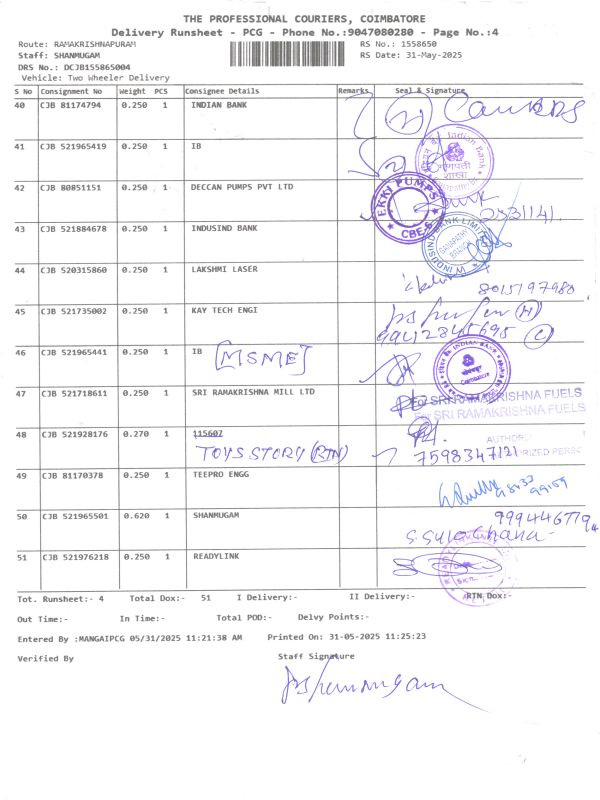 THE PROFESSIONAL COURIERS, COIMBATORE
Delivery Runsheet - PCG - Phone No.:9047080280 - Page No.:4
Route: RAMAKRISHNAPURAM
Staff: SHANMUGAM
DRS No.: DCJB155865004
Vehicle: Two Wheeler Delivery
RS No.: 1558650
RS Date: 31-May-2025
S No Consignment No Weight PCS Consignee Details Remarks Seal & Signature
40 CJB 81174794 0.250 1 INDIAN BANK
41 CJB 521965419 0.250 1 IB
Indian Bank
42 CJB 80851151 0.250 1 DECCAN PUMPS PVT LTD
EKKI PUMPS
CBE-6
2531141.
43 CJB 521884678 0.250 1 INDUSIND BANK
INDUSIND BANK LIMITED
GANAPATHY
BRANCH
44 CJB 520315860 0.250 1 LAKSHMI LASER
8015197980
45 CJB 521735002 0.250 1 KAY TECH ENGI
46 CJB 521965441 0.250 1 IB [MSME]
INDIAN BANK
COIMBATORE
47 CJB 521718611 0.250 1 SRI RAMAKRISHNA MILL LTD
For SRI RAMAKRISHNA FUELS
For SRI RAMAKRISHNA FUELS
48 CJB 521928176 0.270 1 115607
TOYS STORY (RTN)
7598347121
49 CJB 81170378 0.250 1 TEEPRO ENGG
50 CJB 521965501 0.620 1 SHANMUGAM
S. Sulochana
51 CJB 521976218 0.250 1 READYLINK
Tot. Runsheet:- 4 Total Dox:- 51 I Delivery:- II Delivery:- RTN Dox:-
Out Time:- In Time:- Total POD:- Delvy Points:-
Entered By :MANGAIPCG 05/31/2025 11:21:38 AM Printed On: 31-05-2025 11:25:23
Verified By Staff Signature